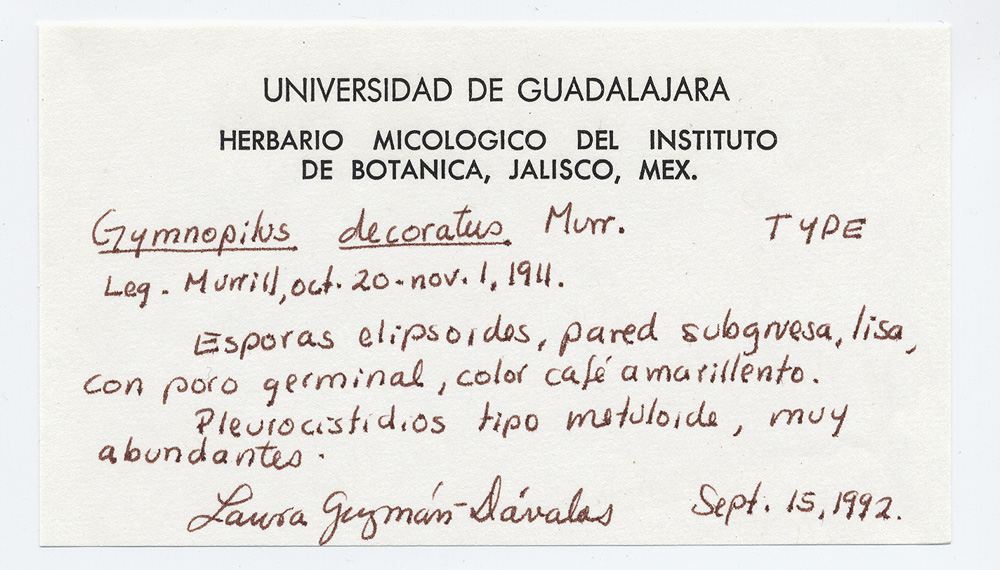 UNIVERSIDAD DE GUADALAJARA
HERBARIO MICOLOGICO DEL INSTITUTO
DE BOTANICA, JALISCO, MEX.
Gymnopilus decoratus Murr. TYPE
Leg. Murrill, oct. 20-nov. 1, 1911.
Esporas elipsoides, pared subgruesa, lisa,
con poro germinal, color café amarillento.
Pleurocistidios tipo metuloide, muy
abundantes.
Laura Guzmán-Dávalos Sept. 15, 1992.